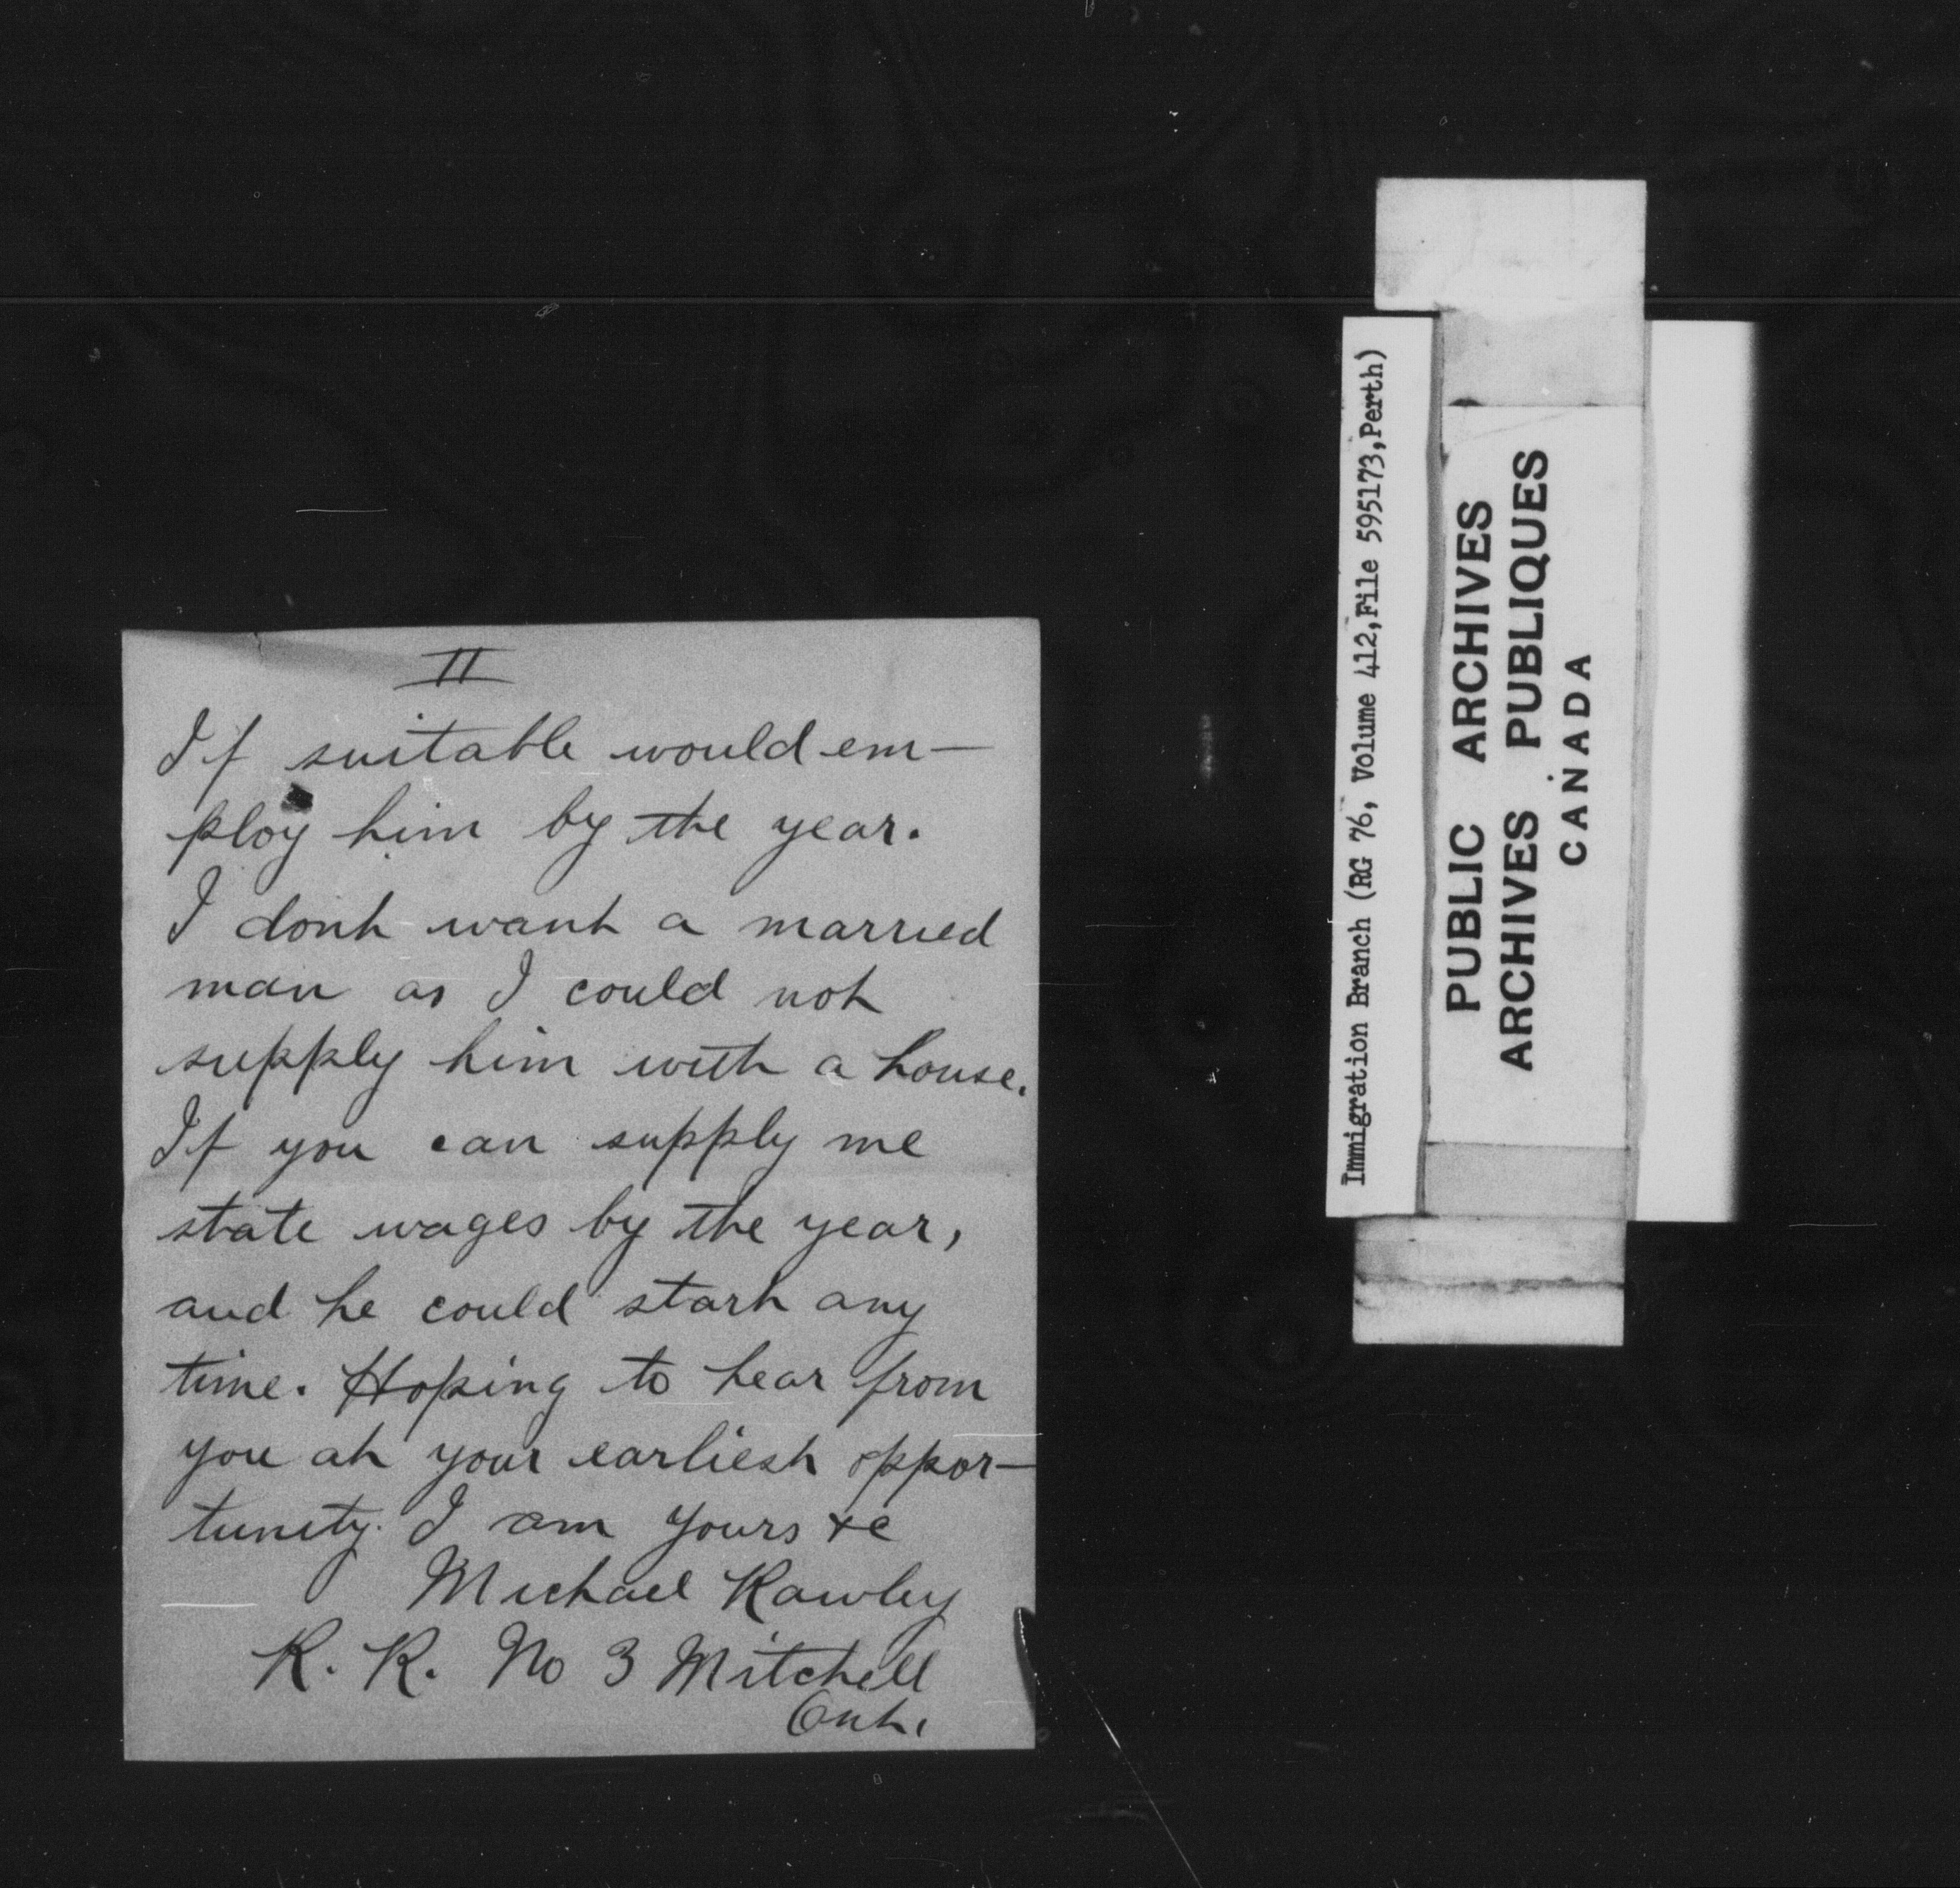 II
If suitable would em-
ploy him by the year.
I dont want a married
man as I could not
supply him with a house.
If you can supply me
state wages by the year,
and he could start any
time. Hoping to hear from
you at your earliest oppor-
tunity. I am yours &c
Michael Rawley
R. R. No 3 Mitchell
Ont.
Immigration Branch (RG 76, Volume 412,File 595173,Perth)
PUBLIC ARCHIVES
ARCHIVES PUBLIQUES
CANADA